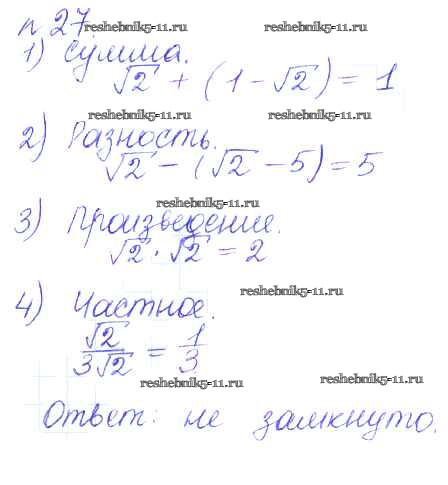 n. 27.
reshebnik5-11.ru
1) Сумма.
√2 + (1 - √2) = 1
reshebnik5-11.ru reshebnik5-11.ru
2) Разность.
√2 - (√2 - 5) = 5
reshebnik5-11.ru
3) Произведение.
√2 · √2 = 2
4) Частное.
reshebnik5-11.ru
√2/3√2 = 1/3
reshebnik5-11.ru reshebnik5-11.ru
Ответ: не замкнуто.